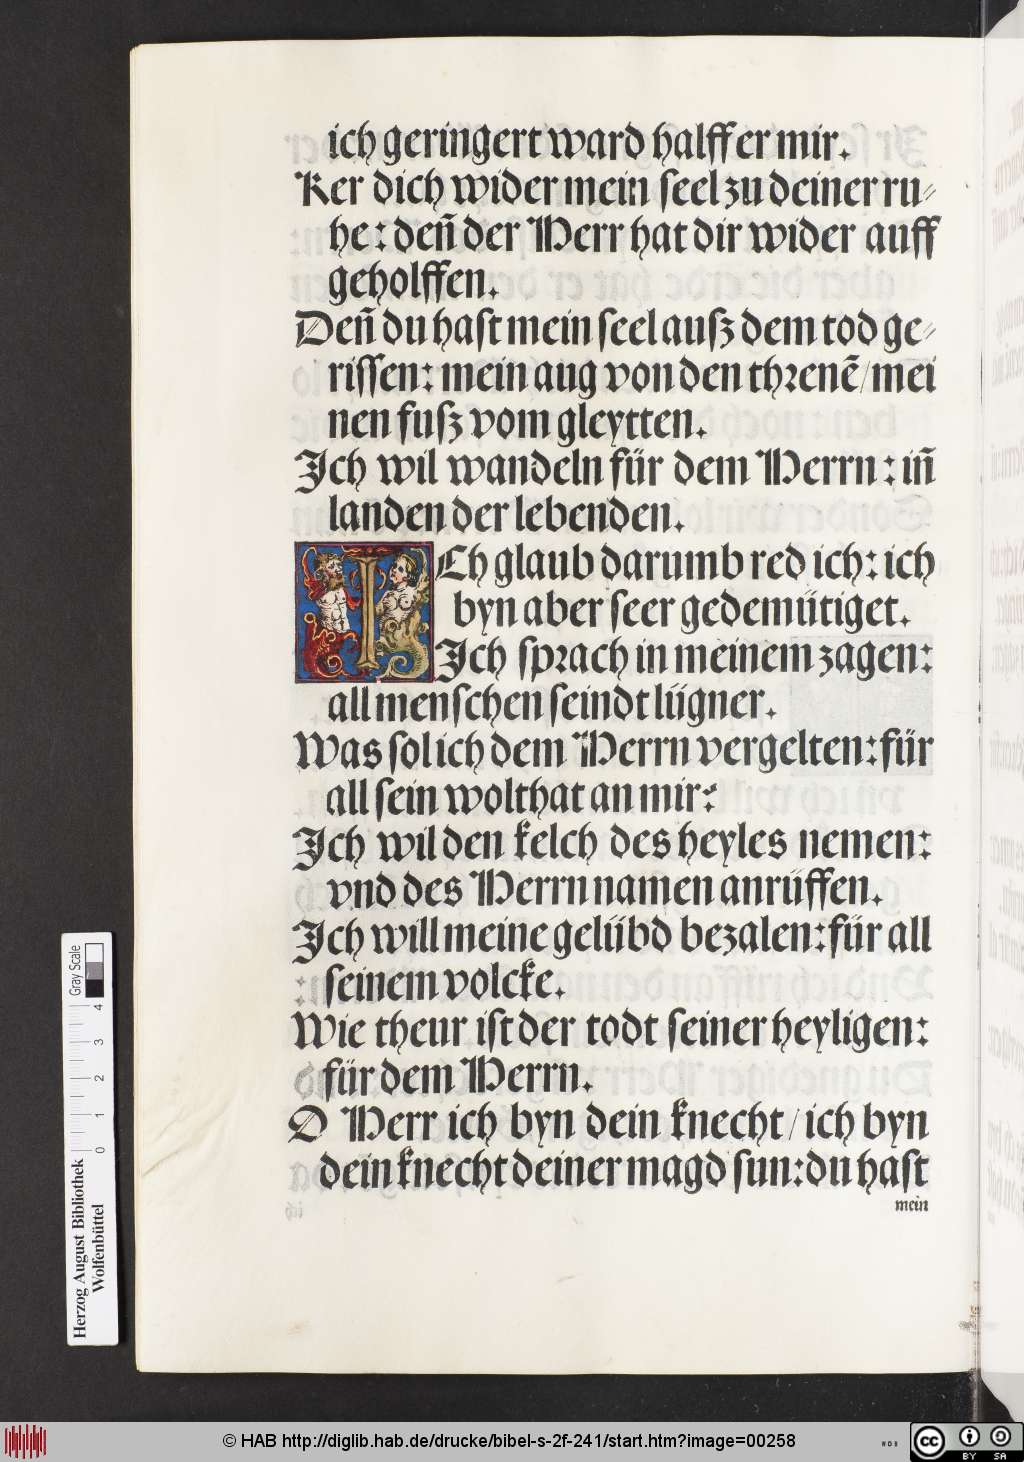 ich geringert ward halff er mir.
Ker dich wider mein seel zu deiner ru⸗
he: deñ der Herr hat dir wider auff
geholffen.
Deñ du hast mein seel ausz dem tod ge⸗
rissen: mein aug von den threnẽ/mei
nen fusz vom gleytten.
Ich wil wandeln für dem Herrn: iñ
landen der lebenden.
ICh glaub darumb red ich: ich
byn aber seer gedemütiget.
Ich sprach in meinem zagen:
all menschen seindt lügner.
Was sol ich dem Herrn vergelten: für
all sein wolthat an mir?
Ich wil den kelch des heyles nemen:
vnd des Herrn namen anrüffen.
Ich will meine gelübd bezalen: für all
seinem volcke.
Wie theur ist der todt seiner heyligen:
für dem Herrn.
O Herr ich byn dein knecht/ich byn
dein knecht deiner magd sun: du hast
mein
Herzog August Bibliothek
Wolfenbüttel
0 1 2 3 4
Gray Scale
© HAB http://diglib.hab.de/drucke/bibel-s-2f-241/start.htm?image=00258
WDB
cc BY SA